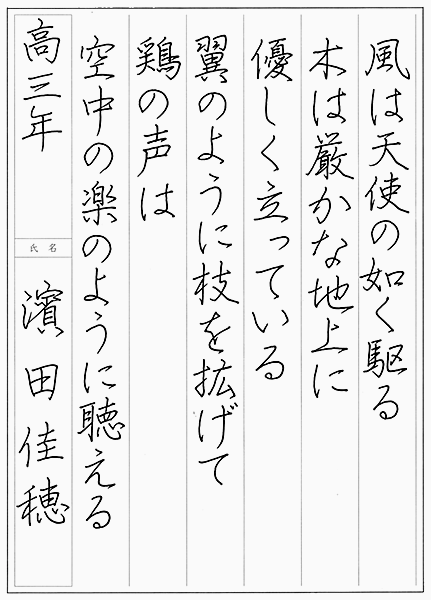 風は天使の如く駆る
木は厳かな地上に
優しく立っている
翼のように枝を拡げて
鶏の声は
空中の楽のように聴える
高三年
氏名
濱田佳穂